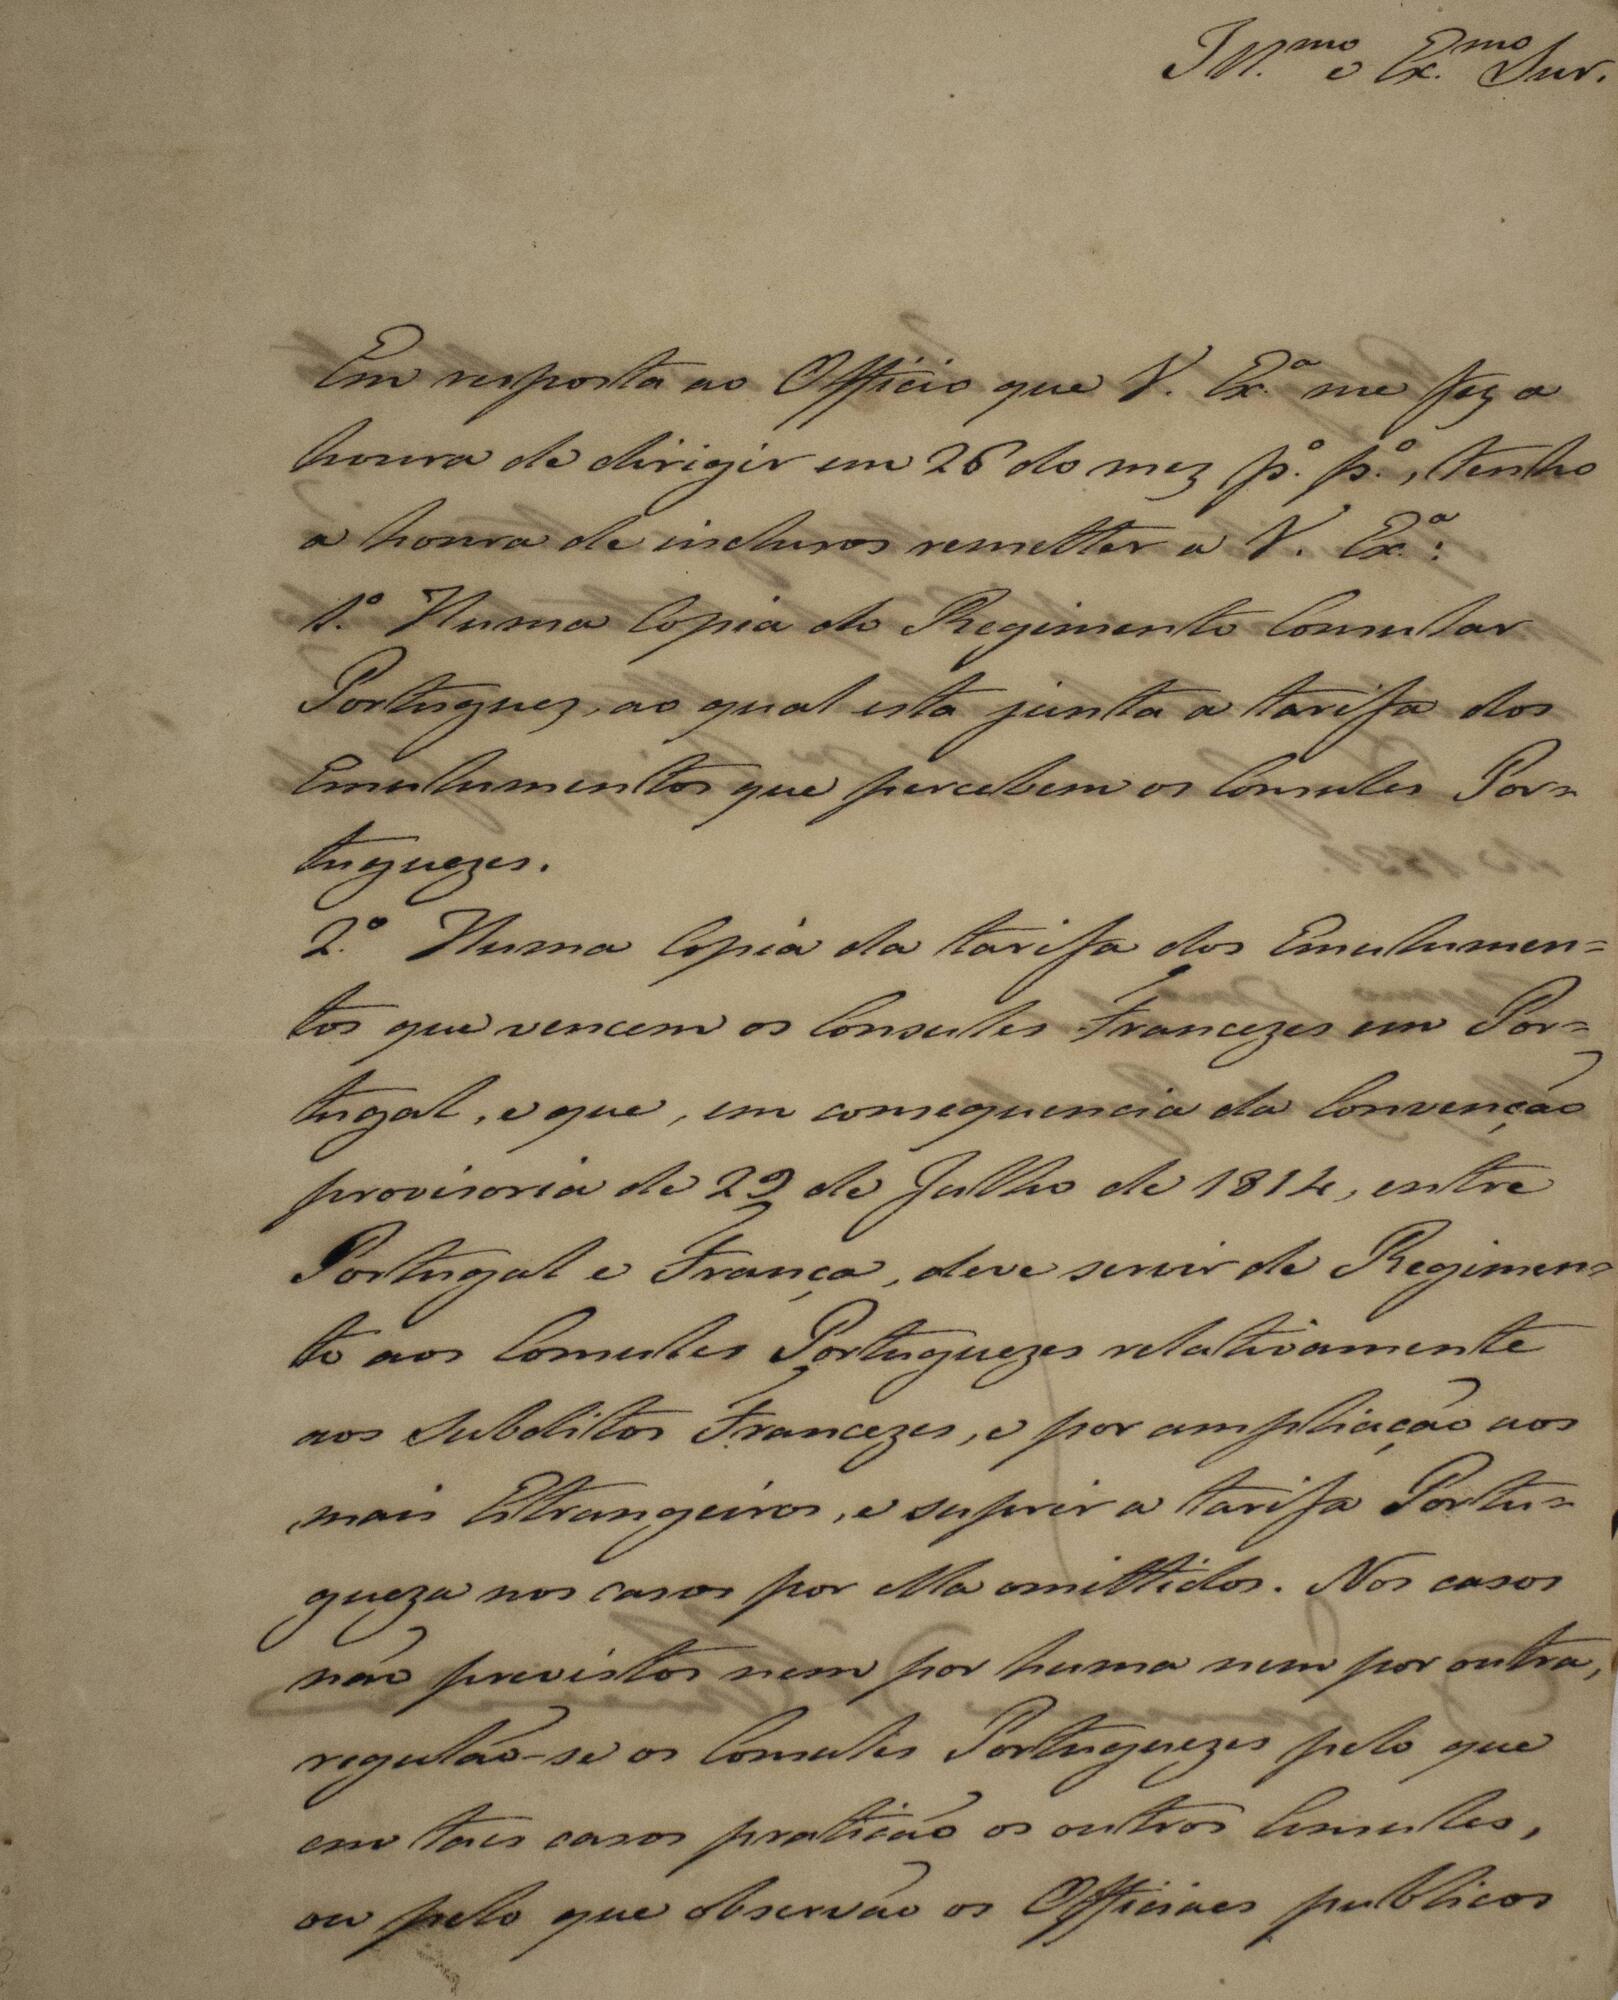 Ill.mo e Ex.mo Snr.
Em resposta ao Officio que V. Ex.a me fez a
honra de dirigir em 26 do mez p.o p.o, tenho
a honra de inclusos remetter a V. Ex.a:
1.o Huma Copia do Regimento Consular
Portuguez, ao qual esta junta a tarifa dos
Emulumentos que percebem os Consules Por=
tuguezes.
2.o Huma Copia da tarifa dos Emulumen=
tos que vencem os Consules Francezes em Por=
tugal, e que, em consequencia da Convenção
provisoria de 29 de Julho de 1814, entre
Portugal e França, deve servir de Regimen=
to aos Consules Portuguezes relativamente
aos Subditos Francezes, e por ampliação aos
mais Estrangeiros, e suprir a tarifa Portu=
gueza nos casos por ella omittidos. Nos casos
não previstos nem por huma nem por outra,
regulão-se os Consules Portuguezes pelo que
em taes casos praticão os outros Consules,
ou pelo que observão os Officiaes publicos